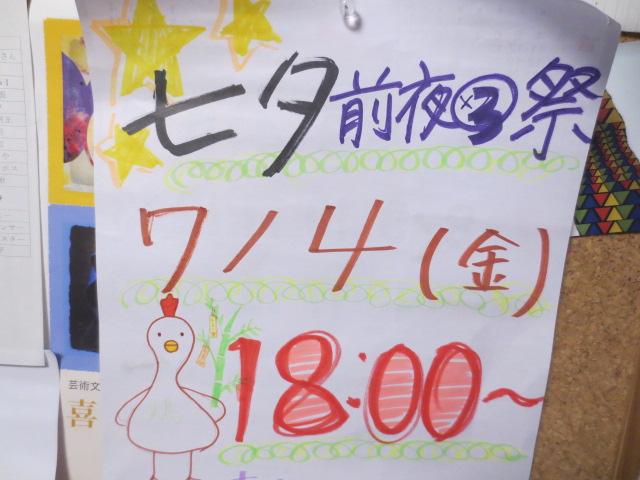 七夕前夜×③祭
7/4(金)
18:00~
芸術文
喜